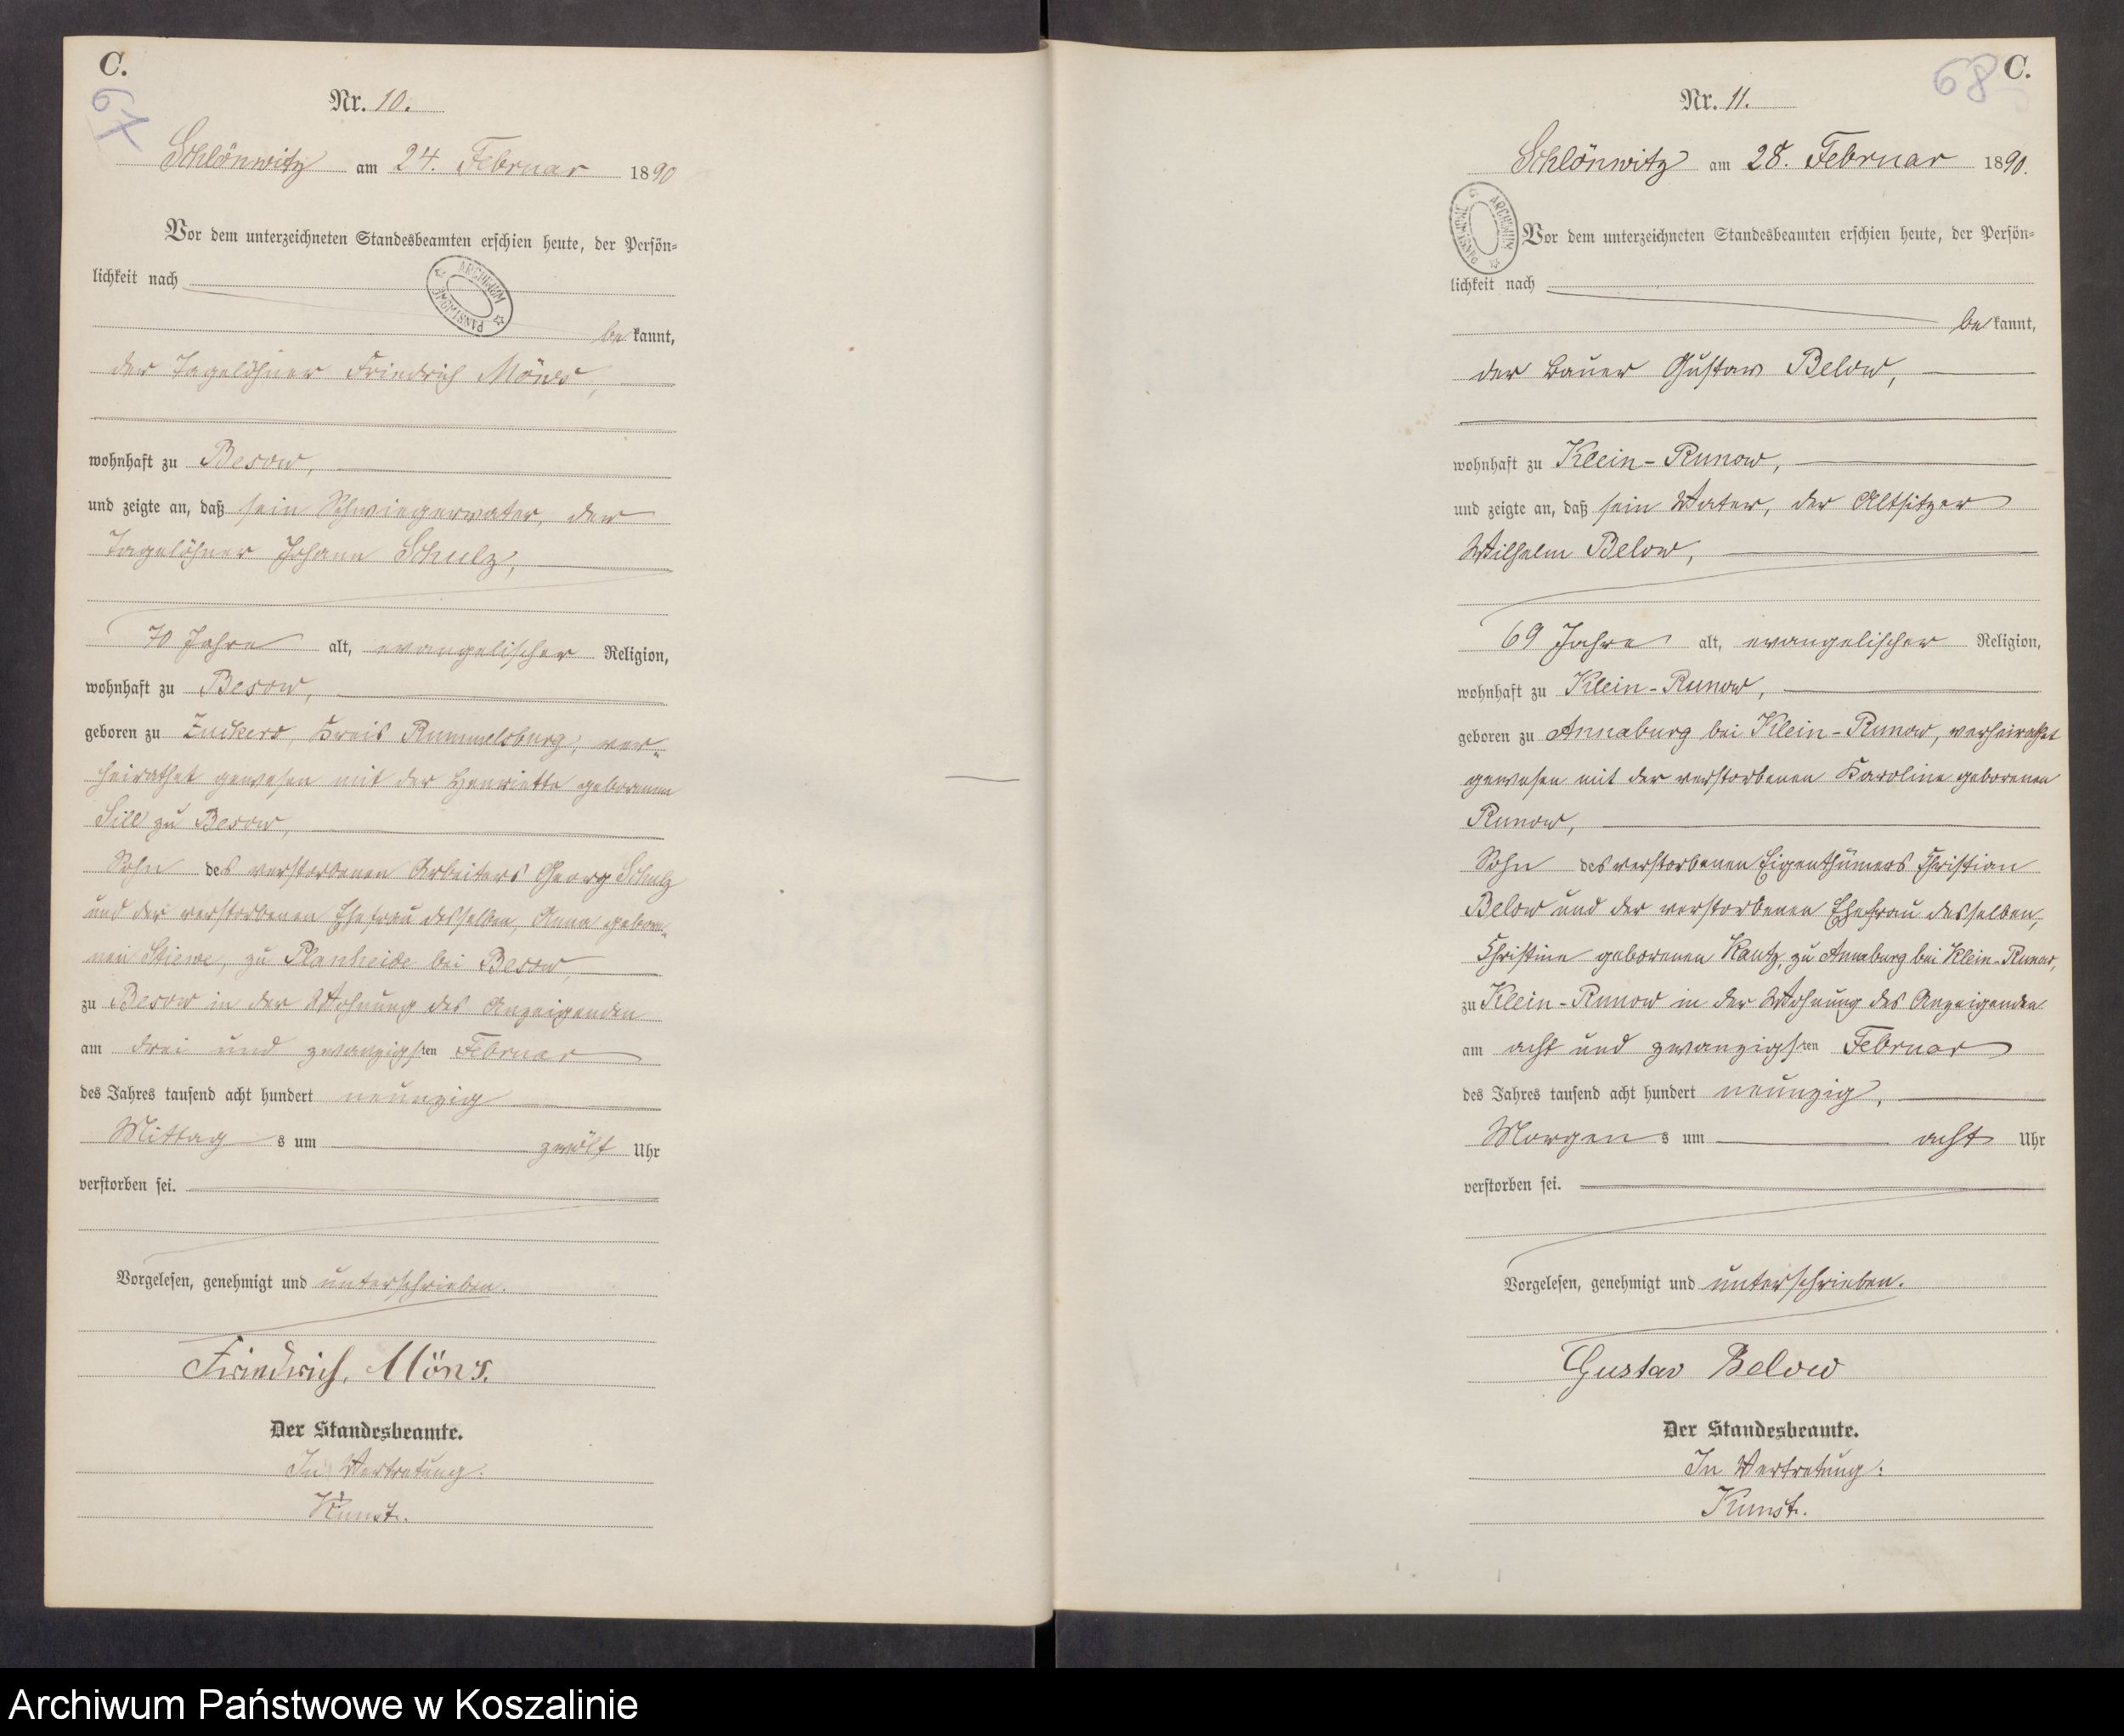 C.
67
Nr. 10.
Schlönwitz am 24. Februar 1890
Vor dem unterzeichneten Standesbeamten erschien heute, der Persön-
lichkeit nach
ARCHIWUM PAŃSTWOWE
bekannt,
der Tagelöhner Friedrich Möns,
wohnhaft zu Besow,
und zeigte an, daß sein Schwiegervater, der
Tagelöhner Johann Schulz,
70 Jahre alt, evangelischer Religion,
wohnhaft zu Besow,
geboren zu Zuckers, Kreis Rummelsburg, ver-
heirathet gewesen mit der Henriette geborenen
Sill zu Besow,
Sohn des verstorbenen Arbeiters Georg Schulz
und der verstorbenen Ehefrau desselben, Anna gebore-
nen Stiewe, zu Planheide bei Besow,
zu Besow in der Wohnung des Anzeigenden
am drei und zwanzigsten Februar
des Jahres tausend acht hundert neunzig
Mittags um zwölf Uhr
verstorben sei.
Vorgelesen, genehmigt und unterschrieben.
Friedrich. Möns.
Der Standesbeamte.
In Vertretung:
Kunst.
68
C.
Nr. 11.
Schlönwitz am 28. Februar 1890.
ARCHIWUM PAŃSTWOWE
Vor dem unterzeichneten Standesbeamten erschien heute, der Persön-
lichkeit nach
bekannt,
der Bauer Gustav Below,
wohnhaft zu Klein-Runow,
und zeigte an, daß sein Vater, der Altsitzer
Wilhelm Below,
69 Jahre alt, evangelischer Religion,
wohnhaft zu Klein-Runow,
geboren zu Annaburg bei Klein-Runow, verheirathet
gewesen mit der verstorbenen Karoline geborenen
Runow,
Sohn des verstorbenen Eigenthümers Christian
Below und der verstorbenen Ehefrau desselben,
Christine geborenen Kautz, zu Annaburg bei Klein-Runow,
zu Klein-Runow in der Wohnung des Anzeigenden
am acht und zwanzigsten Februar
des Jahres tausend acht hundert neunzig,
Morgens um acht Uhr
verstorben sei.
Vorgelesen, genehmigt und unterschrieben.
Gustav Below
Der Standesbeamte.
In Vertretung:
Kunst.
Archiwum Państwowe w Koszalinie